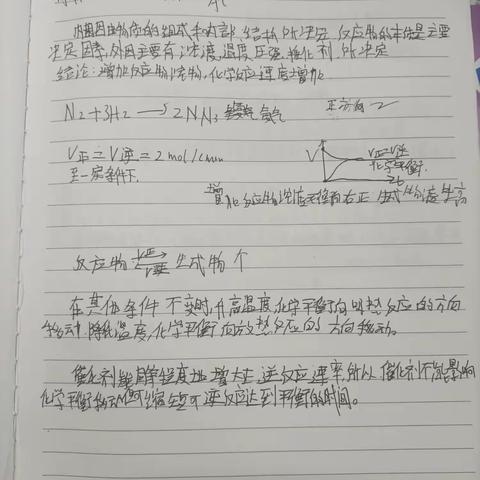 内因由物质的组成和内部结构所决定 反应物的本性是主要
决定因素,外因主要有:浓度,温度,压强,催化剂所决定
结论:增加反应物浓物,化学反应速度增加
N2+3H2 → 2NN3 氨气 正方向
V正=V逆=2mol/L·min
V V正=V逆
至一定条件下. 化学平衡.
增加反应物浓度平移向右正 生成物浓度升高
反应物 V正 V逆 生成物个
在其他条件不变时,升高温度,化学平衡向吸热反应的方向
移动.降低温度,化学平衡向放热反应的方向移动。
催化剂能同等程度地增大正逆反应速率,所以催化剂不能影响
化学平衡移动但可缩短可逆反应达到平衡的时间。